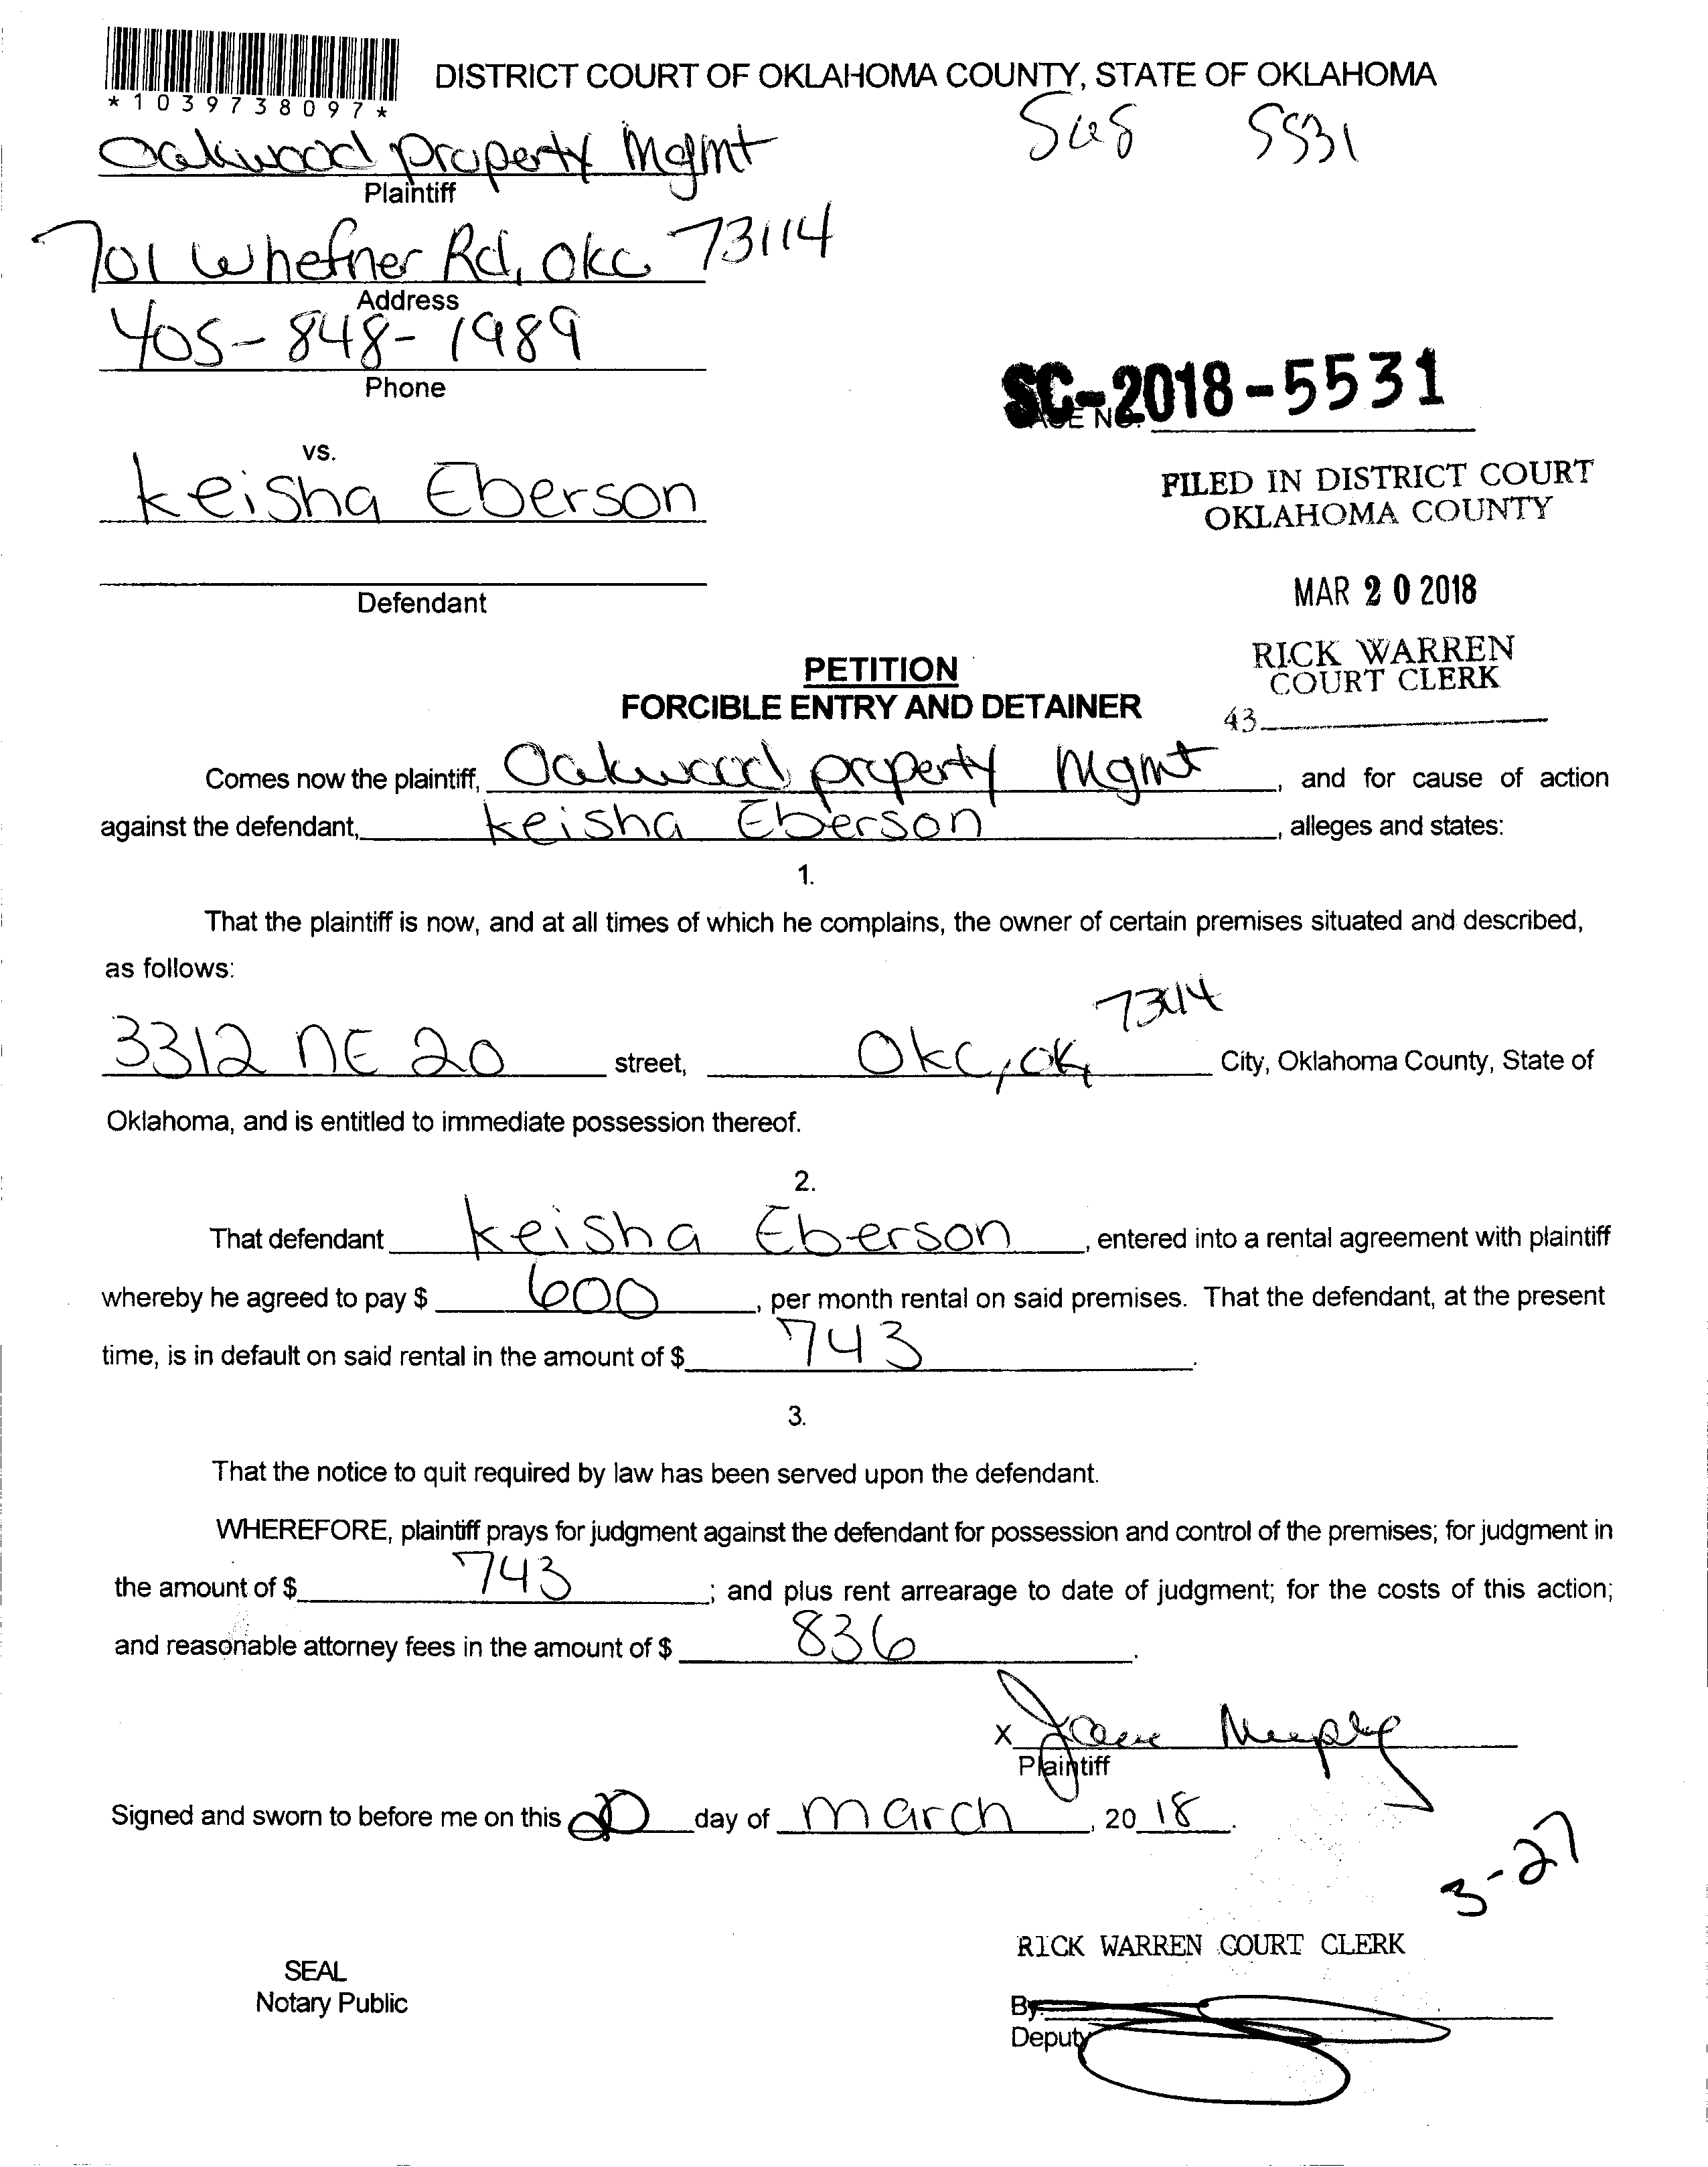 *1039738097*
DISTRICT COURT OF OKLAHOMA COUNTY, STATE OF OKLAHOMA
5531
Oakwood property Mgmt
Plaintiff
701 W hefner Rd, Okc 73114
Address
405-848-1989
Phone
SC-2018-5531
vs.
keisha Eberson
FILED IN DISTRICT COURT
OKLAHOMA COUNTY
Defendant
MAR 20 2018
RICK WARREN
COURT CLERK
43
PETITION
FORCIBLE ENTRY AND DETAINER
Comes now the plaintiff, Oakwood property Mgmt, and for cause of action
against the defendant, keisha Eberson, alleges and states:
1.
That the plaintiff is now, and at all times of which he complains, the owner of certain premises situated and described,
as follows:
3312 NE 20 street, Okc, ok, City, Oklahoma County, State of
Oklahoma, and is entitled to immediate possession thereof.
2.
That defendant keisha Eberson, entered into a rental agreement with plaintiff
whereby he agreed to pay $ 600, per month rental on said premises. That the defendant, at the present
time, is in default on said rental in the amount of $ 743.
3.
That the notice to quit required by law has been served upon the defendant.
WHEREFORE, plaintiff prays for judgment against the defendant for possession and control of the premises; for judgment in
the amount of $ 743; and plus rent arrearage to date of judgment; for the costs of this action;
and reasonable attorney fees in the amount of $ 836.
X
Plaintiff
Signed and sworn to before me on this 20 day of march, 20 18.
3-27
RICK WARREN COURT CLERK
SEAL
Notary Public
By
Deputy